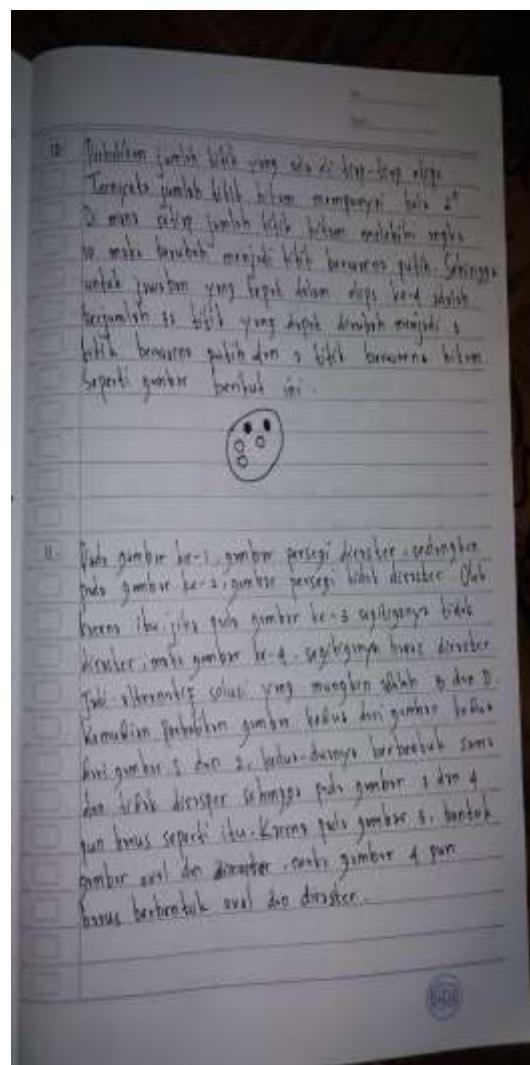 10. Perhatikan jumlah titik yang ada di tiap-tiap elips
Ternyata jumlah titik hitam mempunyai pola
Di mana setiap jumlah titik hitam melebihi angka
10 maka berubah menjadi titik berwarna putih. Sehingga
untuk jawaban yang tepat dalam elips ke-4 adalah
berjumlah 32 titik yang dapat dirubah menjadi 3
titik berwarna putih dan 2 titik berwarna hitam
Seperti gambar berikut ini.
11. Pada gambar ke-1, gambar persegi diraster, sedangkan
pada gambar ke-2, gambar persegi tidak diraster Oleh
karena itu, jika pada gambar ke-3 segitiganya tidak
diraster, maka gambar ke-4, segitiganya harus diraster
Jadi alternatif solusi yang mungkin adalah B dan D.
Kemudian perhatikan gambar kedua dari gambar kedua
dari gambar 1 dan 2, kedua-duanya berbentuk sama
dan tidak diraster sehingga pada gambar 3 dan 4
pun harus seperti itu. Karena pada gambar 3, bentuk
gambar oval dan diraster, maka gambar 4 pun
harus berbentuk oval dan diraster.
SiDU